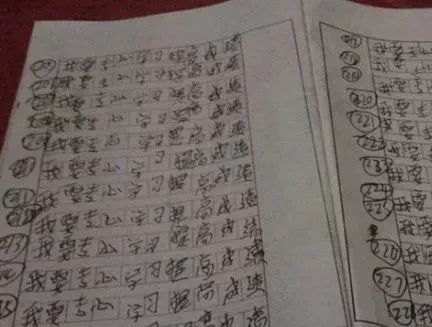 我要专心学习提高成绩
我要专心学习提高成绩
我要专心学习提高成绩
我要专心学习提高成绩
我要专心学习提高成绩
我要专心学习提高成绩
211 我要专心学习提高成绩
212 我要专心学习提高成绩
213 我要专心学习提高成绩
214 我要专心学习提高成绩
215 我要专心学习提高成绩
217 我要专心
218 我要专
219 我要
220 我要
221 我要
222 我要
223 我要
224 我要
225 我要
226 我
227 我
228 我